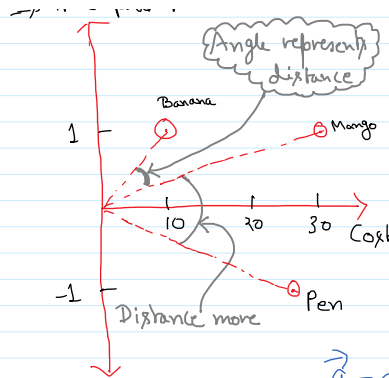 Angle represents
distance
Banana
Mango
1
10
20
30
Cost
-1
Pen
Distance more